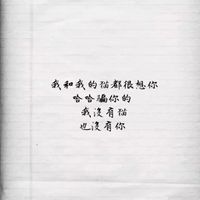 我和我的猫都很想你
哈哈骗你的
我没有猫
也没有你